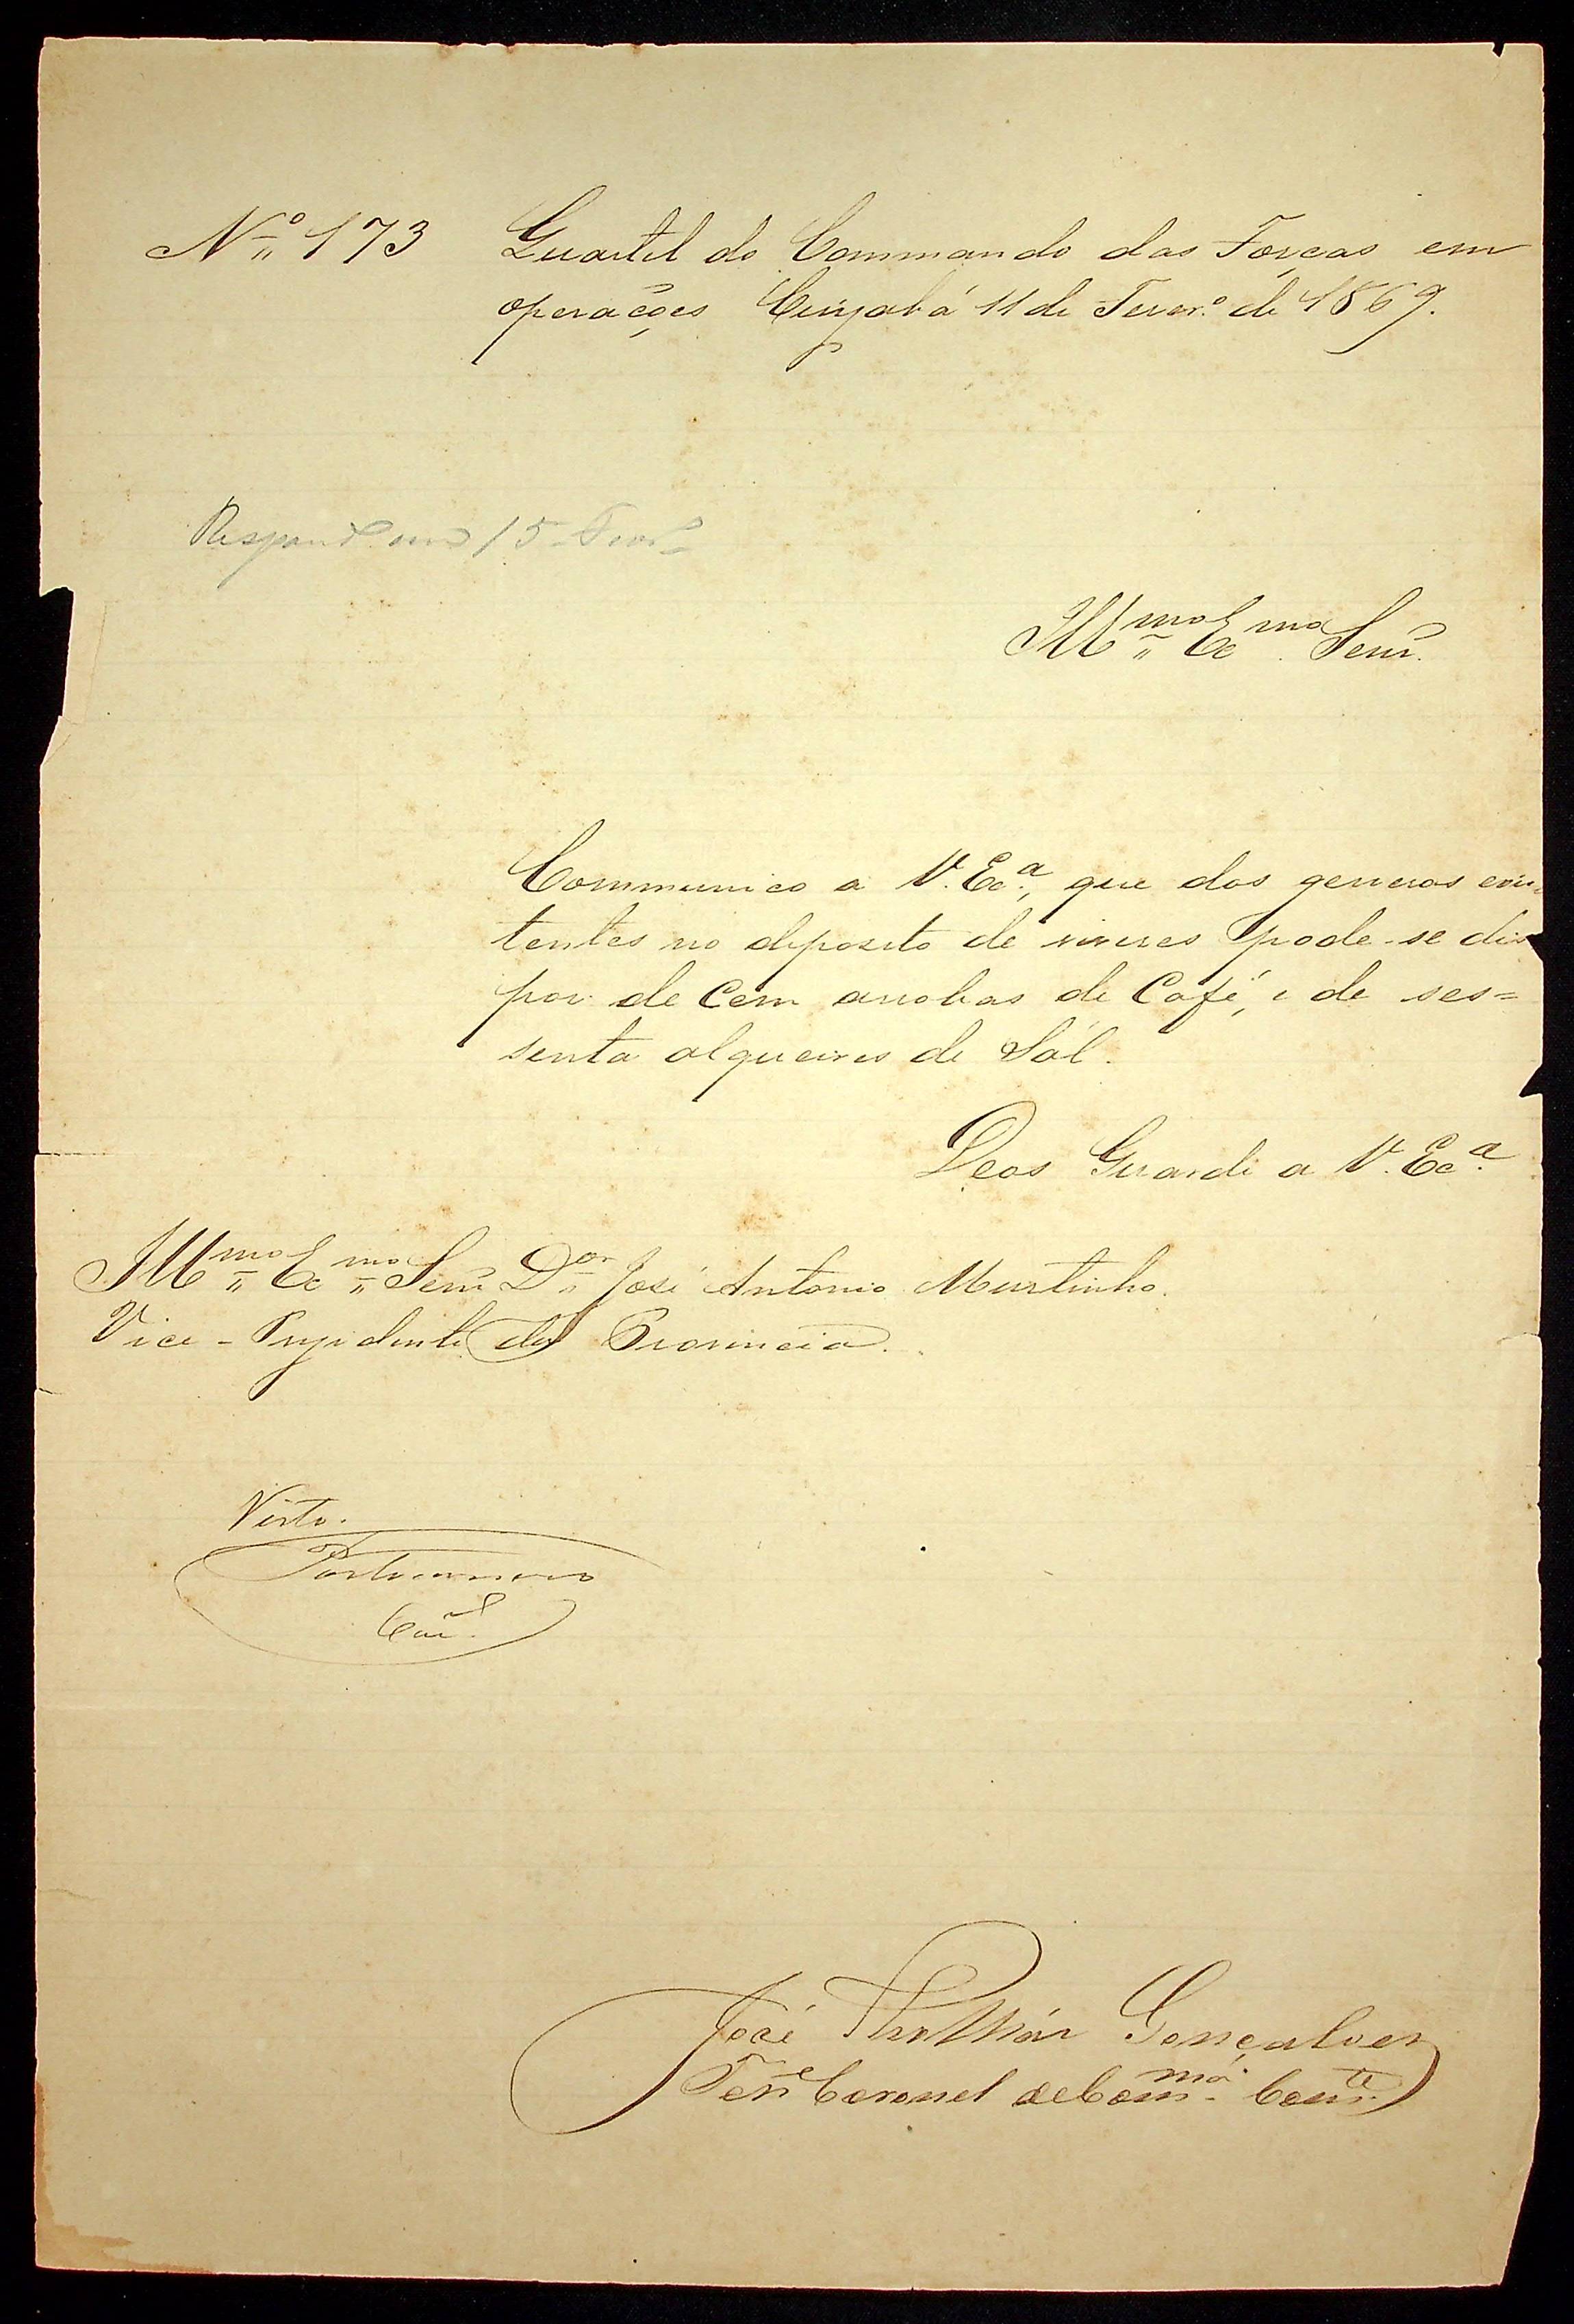 Nº 173 Quartel do Commando das Forças em
operações Cuyabá 11 de Fever.º de 1869.
Respond. em 15 Fev.
Ill.mo Ex.mo Senr.
Communico a V. Ex.a, que dos generos exis-
tentes no deposito de viveres pode-se dis
por de Cem arrobas de Café, e de ses=
senta alqueires de Sal.
Deos Guarde a V. Ex.a
Ill.mo Ex.mo Senr. D.or José Antonio Murtinho.
Vice-Prezidente da Provincia.
Visto.
Cor.el
José Gonçalves
Ten.e Coronel de Com.